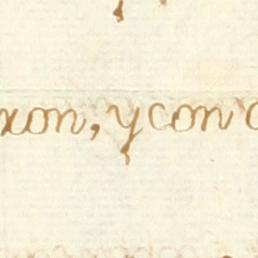 xon, y con